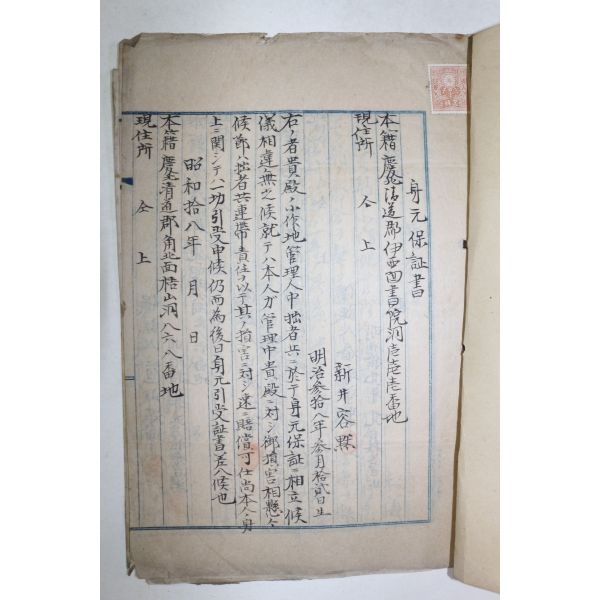 身元保証書
本籍 慶北清道郡伊西面書院洞壱壱壱番地
現住所 仝上
新井容
明治参拾八年参月拾弐日生
右ノ者貴殿ノ小作地管理人中拙者共ニ於テ身元保証ニ相立候
儀相違無之候就テハ本人ガ管理中貴殿ニ対シ御損害相懸ケ
候節ハ拙者共連帯責任ヲ以テ其ノ損害ニ対シ速ニ賠償可仕尚本人ノ身
上ニ関シテハ一切引受申候仍而為後日身元引受証書差入候也
昭和拾八年 月 日
本籍 慶北清道郡角北面梧山洞八六八番地
現住所 仝上